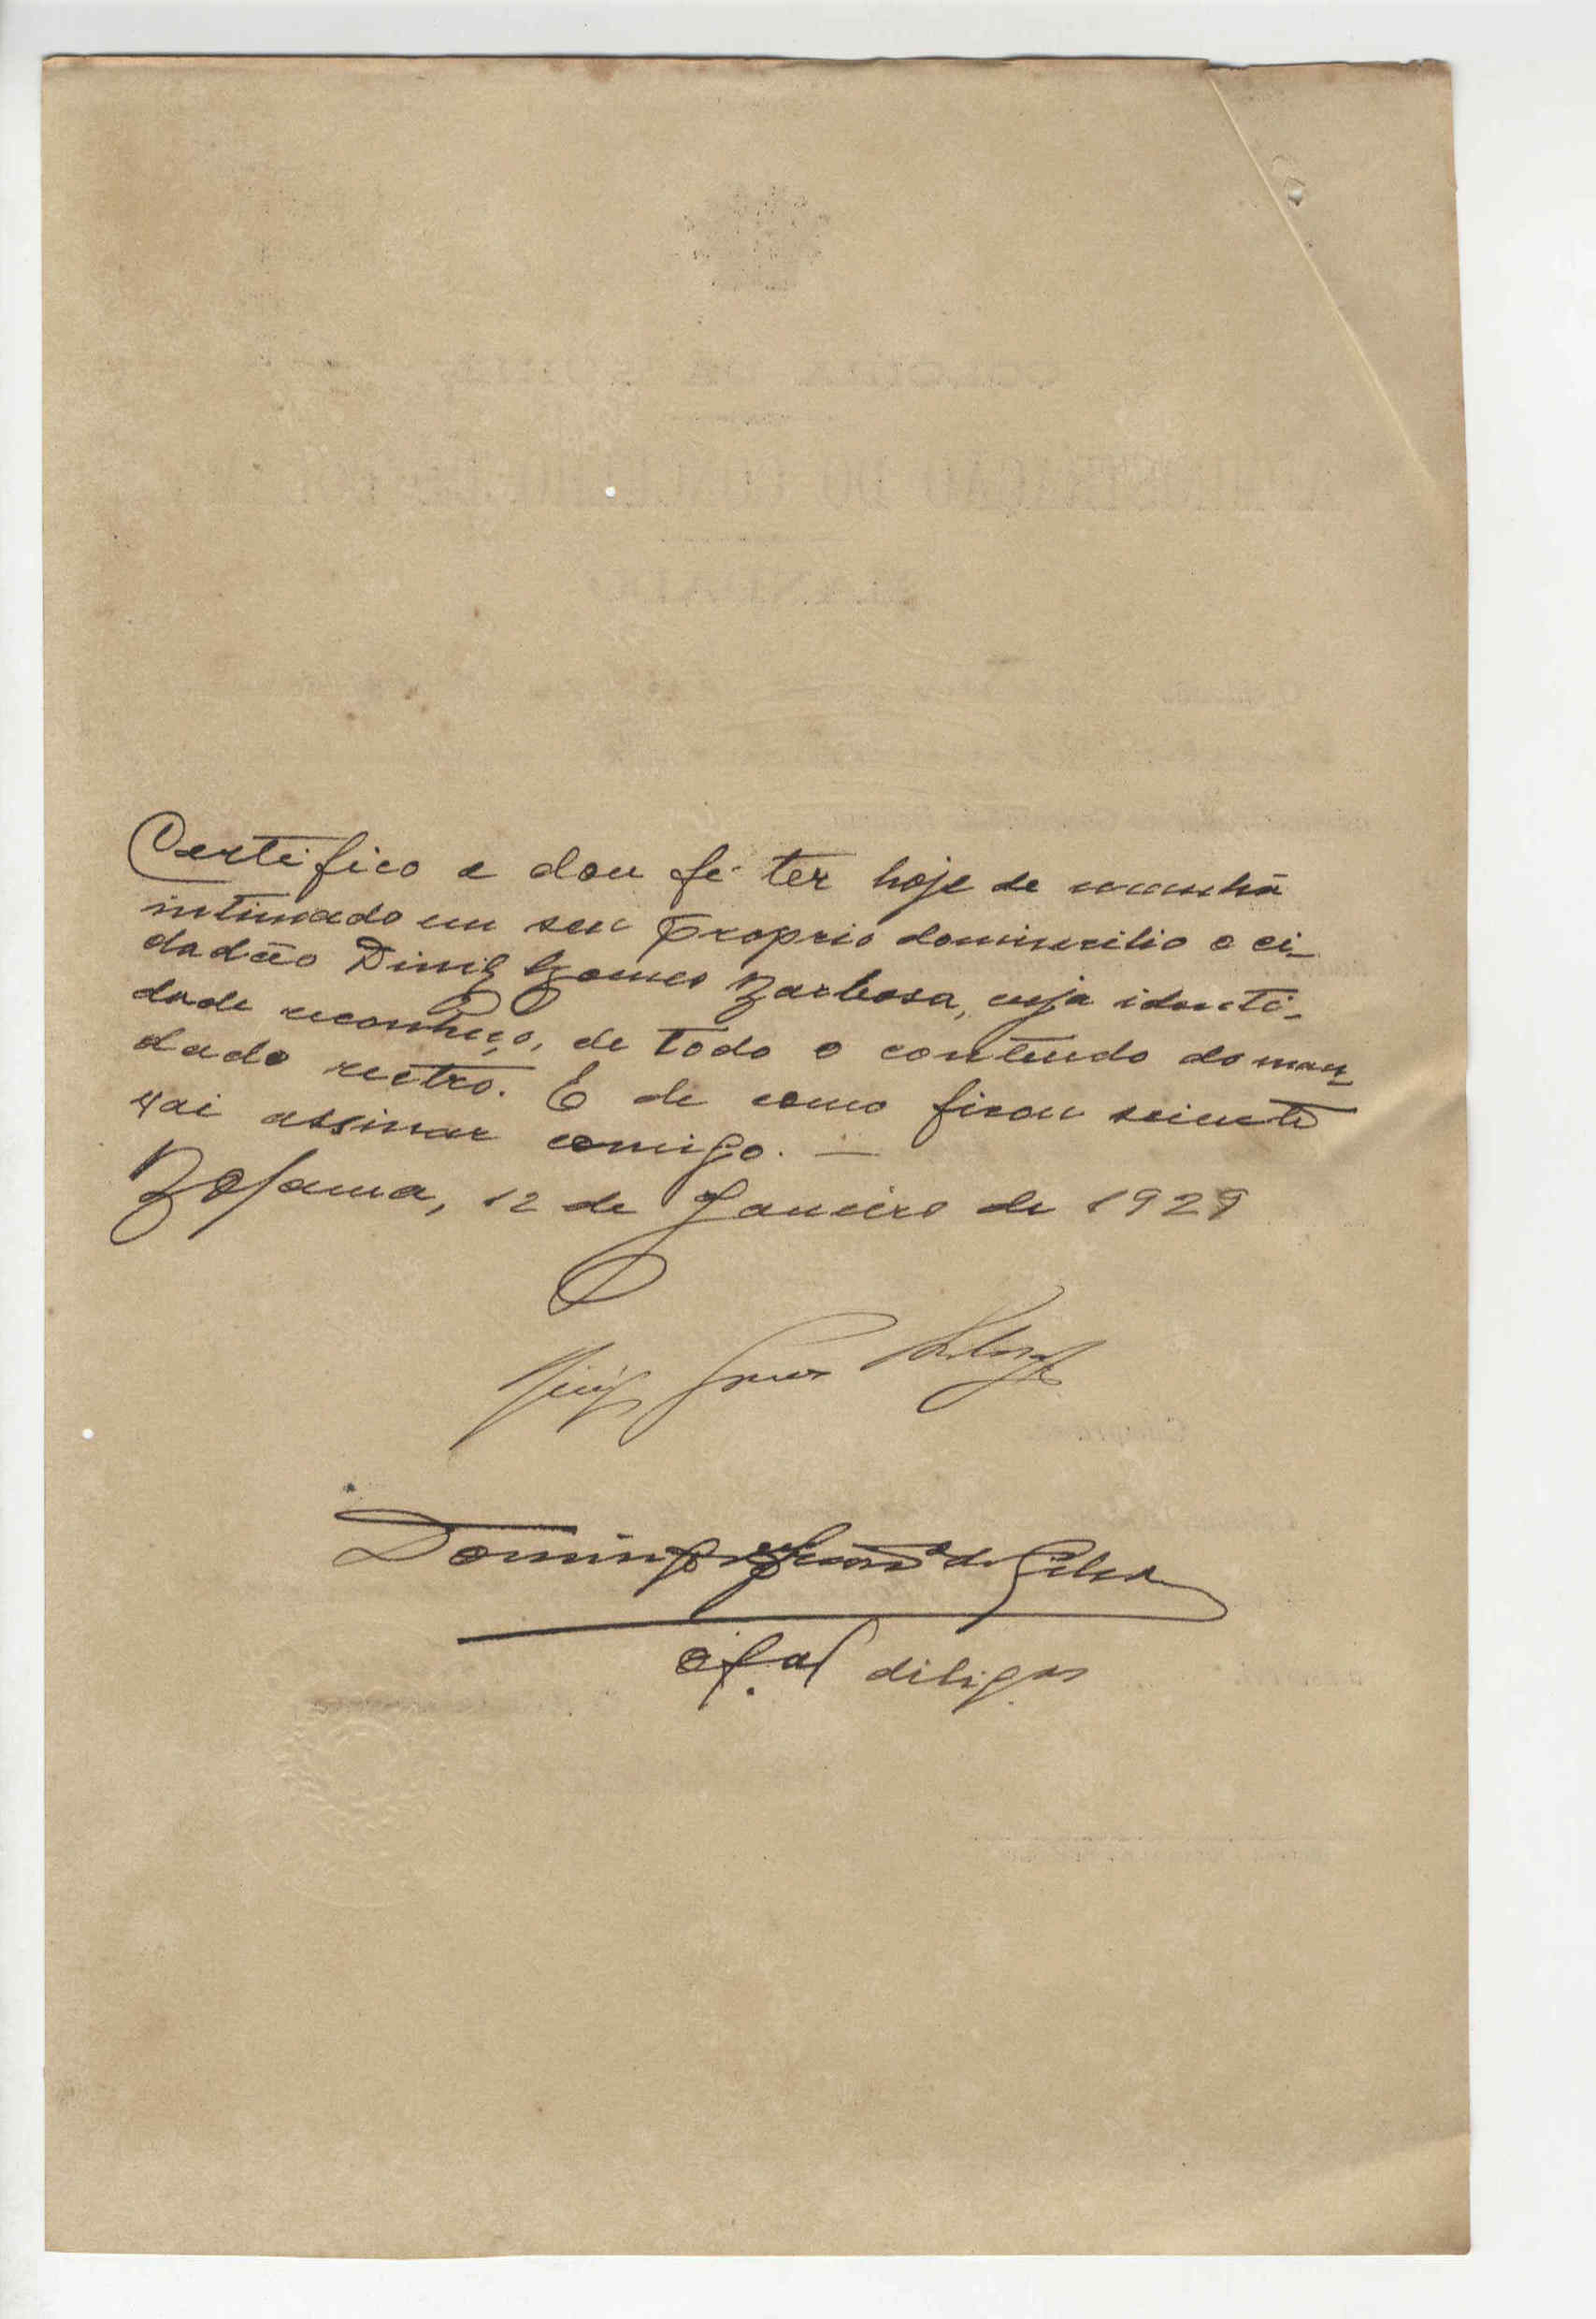 Certifico e dou fé ter hoje de manhã
intimado em seu proprio dominicilio o ci-
dadão Diniz Gomes Barbosa, cuja identi-
dade reconheço, de todo o conteudo do man-
dado rectro. E de como ficou sciente
vai assinar comigo. —
Bolama, 12 de Janeiro de 1929
Diniz Gomes Barbosa
Domingos da Silva
of.al diligas